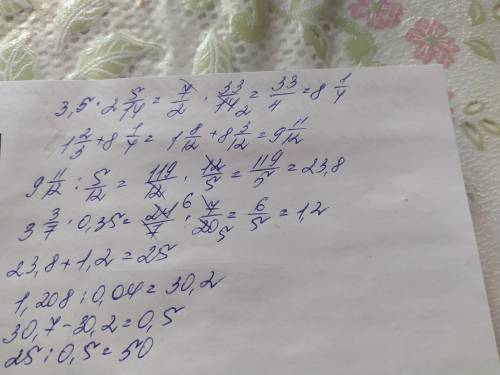 3,5 · 2 5/14 = 7/2 · 33/14 2 = 33/4 = 8 1/4
1 2/3 + 8 1/4 = 1 8/12 + 8 3/12 = 9 11/12
9 11/12 : 5/12 = 119/12 · 12/5 = 119/5 = 23,8
3 3/7 · 0,35 = 24/7 6 · 7/20 5 = 6/5 = 1,2
23,8 + 1,2 = 25
1,208 : 0,04 = 30,2
30,7 - 30,2 = 0,5
25 : 0,5 = 50